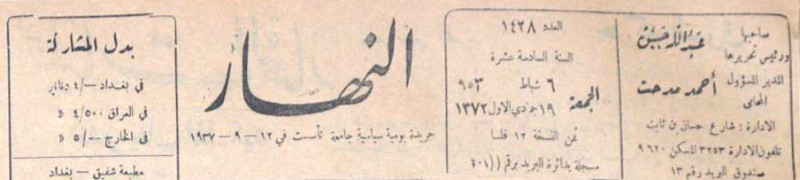 صاحبها
ورئيس تحريرها
عبدالله حسن
المدير المسؤول
المحامي
أحمد مدحت
الادارة : شارع حسان بن ثابت
تلفون الادارة ٣٢٥٣ المسكن ٩٦٢٠
صندوق البريد رقم ١٣
العدد ١٤٢٨
السنة السادسة عشرة
الجمعة
٦ شباط ٩٥٣
١٩ جمادي الاول ١٣٧٢
ثمن النسخة ١٢ فلسا
مسجلة بدائرة البريد برقم ((٤٠١
النهار
جريدة يومية سياسية جامعة تأسست في ١٢ - ٩ - ١٩٣٧
بدل المشاركة
في بغداد -/٤ دنانير
في العراق ٤/٥٠٠ »
في الخارج -/٥ »
مطبعة شفيق - بغداد